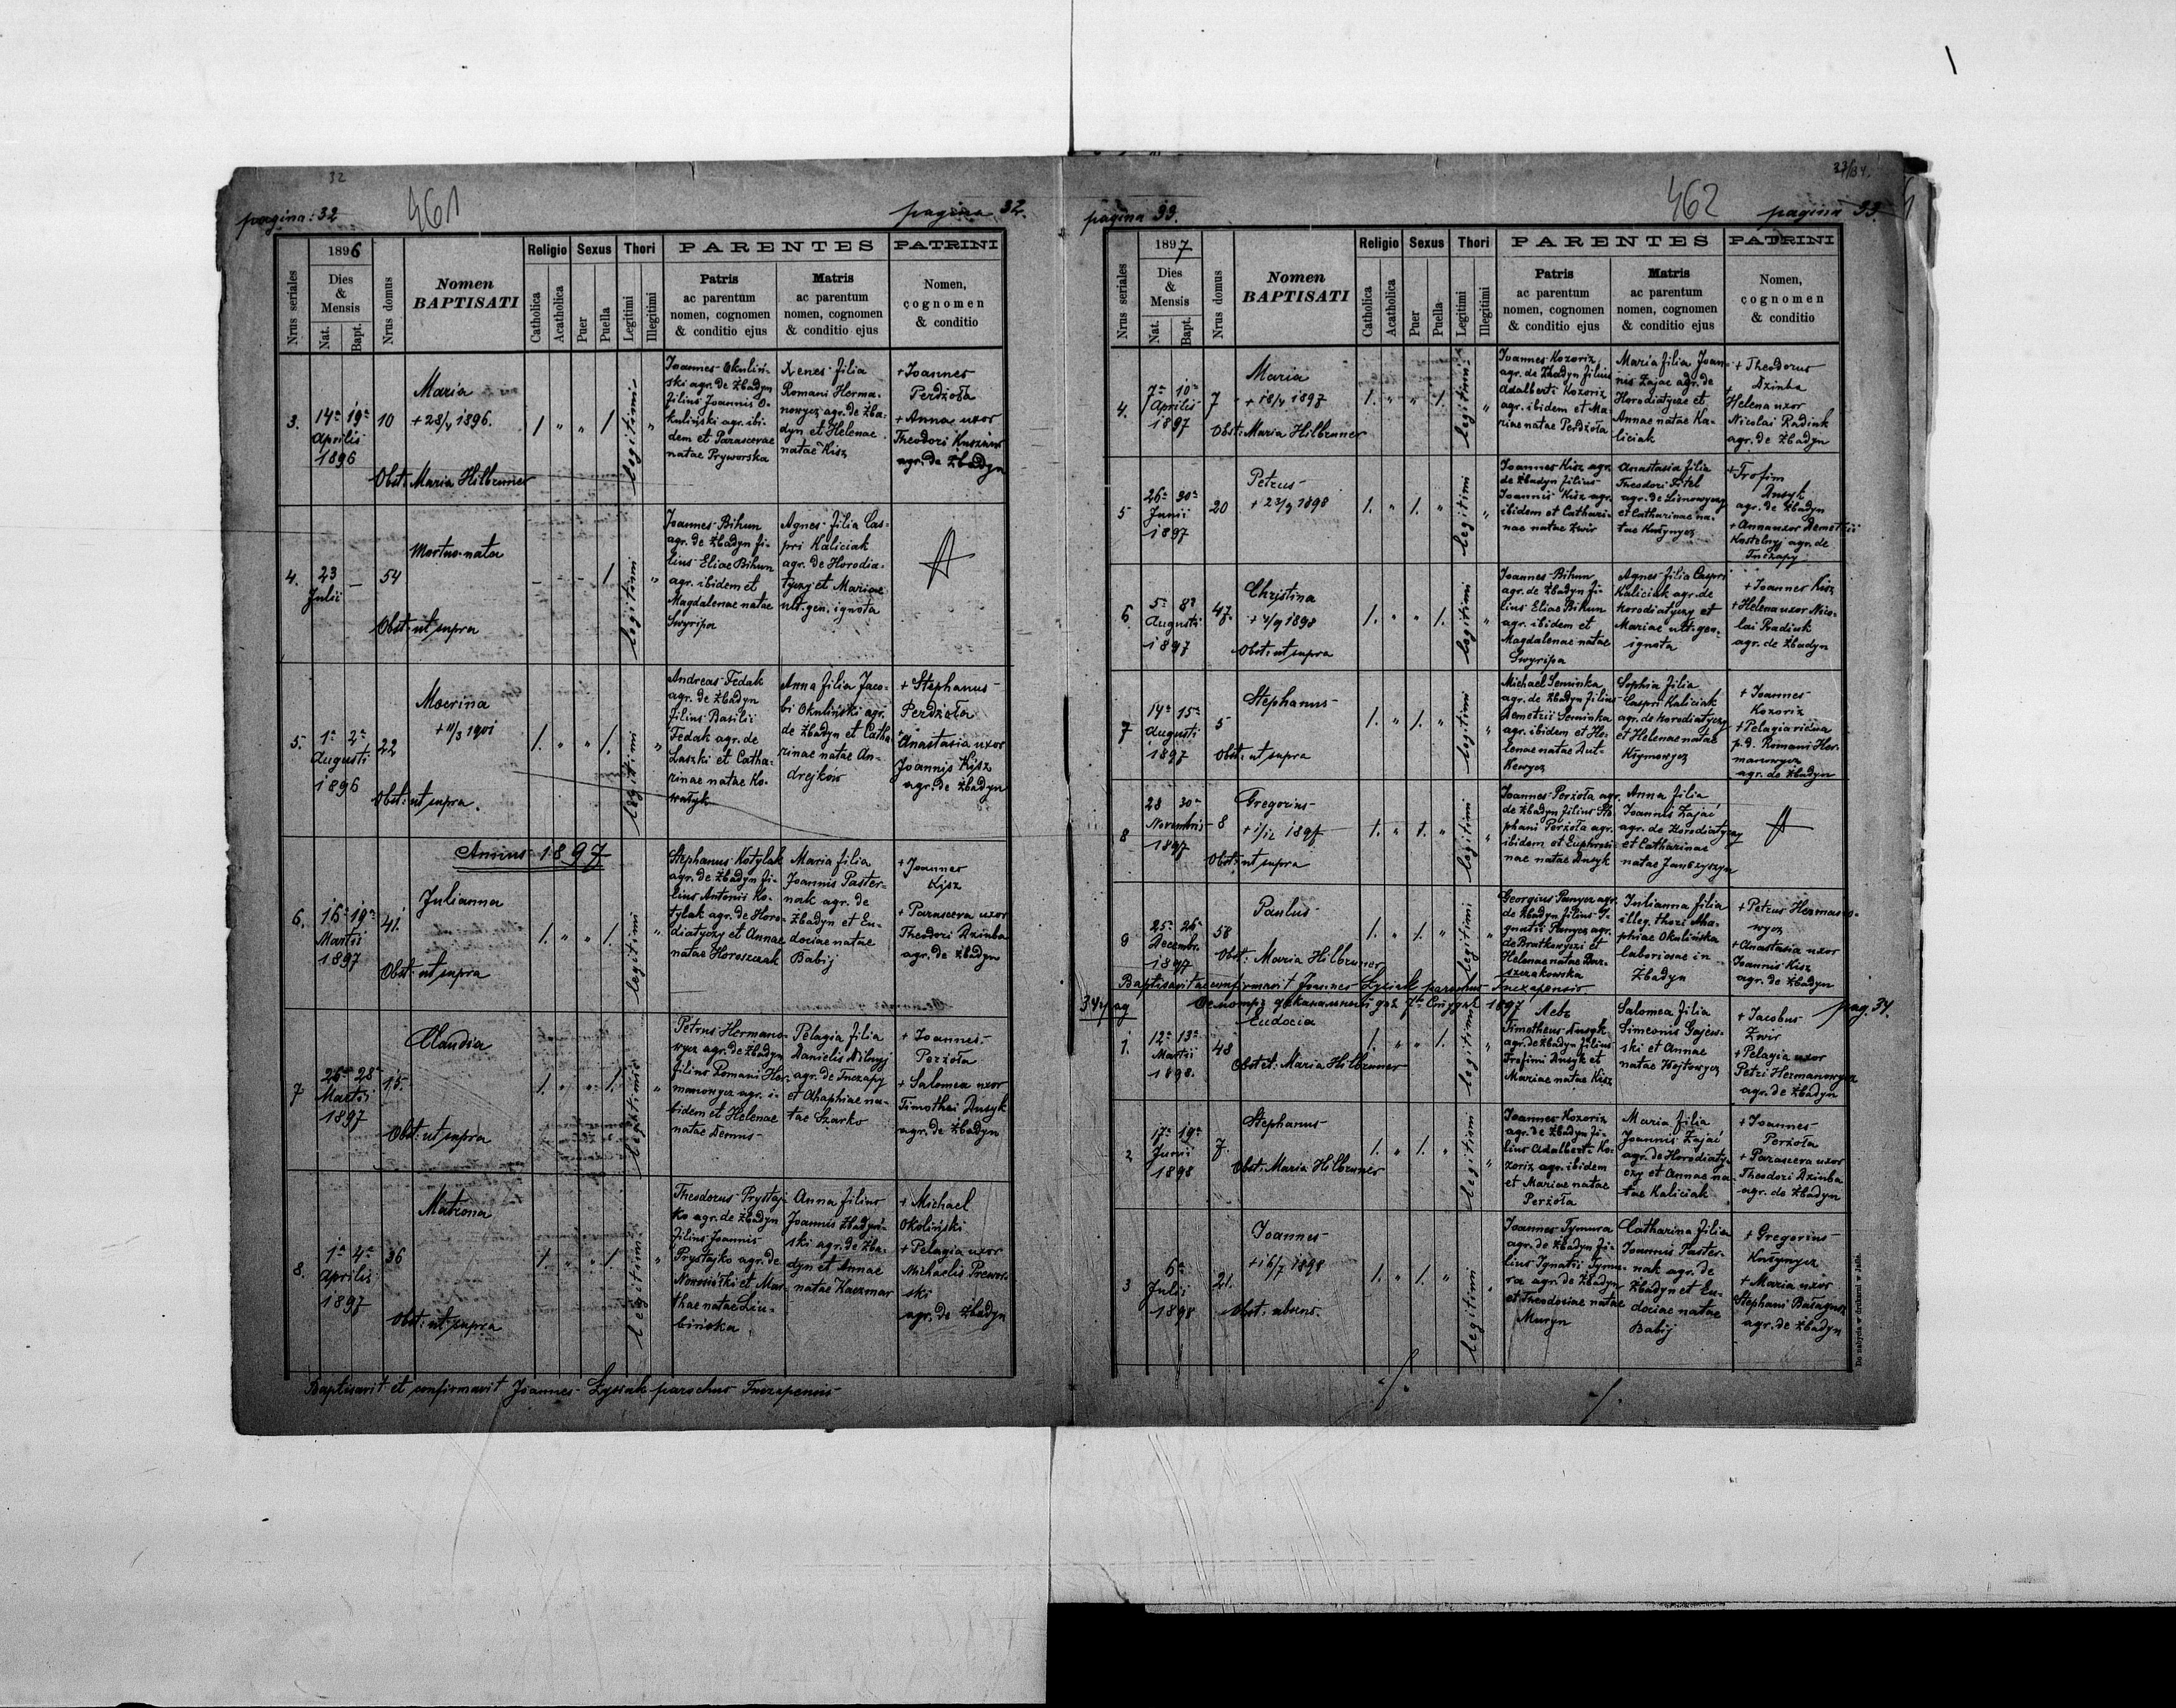 32
461
pagina: 32
pagina 32.
1896
Religio
Sexus
Thori
PARENTES
PATRINI
Nrus seriales
Dies
&
Mensis
Nat.
Bapt.
Nrus domus
Nomen
BAPTISATI
Catholica
Acatholica
Puer
Puella
Legitimi
Illegitimi
Patris
ac parentum
nomen, cognomen
& conditio ejus
Matris
ac parentum
nomen, cognomen
& conditio ejus
Nomen,
cognomen
& conditio
3.
14a 19a
Aprilis
1896
10
Maria
+ 28/4 1896.
Obst: Maria Hilbruner
/ " " / legitimi "
Joannes Okuliń-
ski agr. de Żbadyn
filius Joannis O-
kuliński agr. ibi-
dem et Parascevae
natae Pryworska
Xenes filia
Romani Herma-
nowycz agr. de Żba-
dyn et Helenae
natae Kisz
+ Joannes
Perdzoła
+ Anna uxor
Theodori
agr. de Żbadyn
4.
23
Julii
–
54
Mortuo-nata
Obst: ut supra
– – – / legitimi "
Joannes Bihun
agr. de Żbadyn fi-
lius Eliae Bihun
agr. ibidem et
Magdalenae natae
Swyripa
Agnes filia Cas-
pri Kaliciak
agr. de Horodia-
tyczy et Mariae
ult. gen. ignota
5.
1a 2a
Augusti
1896
22
Mocrina
+ 11/3 1901
Obst: ut supra.
/. " " /. legitimi "
Andreas Fedak
agr. de Żbadyn
filius Basilii
Fedak agr. de
Laszki et Catha-
rinae natae Ko-
watyk
Anna filia Jaco-
bi Okuliński agr.
de Żbadyn et Catha
rinae natae An-
drejków
+ Stephanus
Perdzoła
+ Anastasia uxor
Joannis Kisz
agr. de Żbadyn
Annus 1897
6.
16a 19a
Martii
1897
41.
Julianna
Obst: ut supra
/. " " /. legitimi "
Stephanus Kotylak
agr. de Żbadyn fi-
lius Antonii Ko-
tylak agr. de Horo-
diatyczy et Annae
natae Horoszczak
Maria filia
Joannis Paster-
nak agr. de
Żbadyn et Eu-
dociae natae
Babij
+ Joannes
Kisz
+ Parasceva uxor
Theodori Dzinba
agr. de Żbadyn
7
26a 28a
Martii
1897
15.
Claudia
Obst: ut supra
/. " " /. legitimi "
Petrus Hermano-
wycz agr. de Żbadyn
filius Romani Her-
manowycz agr. i-
bidem et Helenae
natae Demus
Pelagia filia
Danielis Nilnyj
agr. de Tuczapy
et Ahaphiae na-
tae Szarko
+ Joannes
Perzoła
+ Salomea uxor
Timothei Dusyk
agr. de Żbadyn
8.
1a 4a
Aprilis
1897
36
Matrona
Obst: ut supra
/. " " /. legitimi "
Theodorus Prystaj
ko agr. de Żbadyn
filius Joannis
Prystajko agr. de
et Mar-
thae natae Liu-
bińska
Anna filius
Joannis Żbadyń-
ski agr. de Żba-
dyn et Annae
natae Kaczmar
+ Michael
Okoliński
+ Pelagia uxor
Michaelis Prewor-
ski
agr. de Żbadyn
Baptisavit et confirmavit Joannes Łysiak parochus Tuczapensis
33/34.
462
pagina 33.
pagina 33.
1897
Religio
Sexus
Thori
PARENTES
PATRINI
Nrus seriales
Dies
&
Mensis
Nat.
Bapt.
Nrus domus
Nomen
BAPTISATI
Catholica
Acatholica
Puer
Puella
Legitimi
Illegitimi
Patris
ac parentum
nomen, cognomen
& conditio ejus
Matris
ac parentum
nomen, cognomen
& conditio ejus
Nomen,
cognomen
& conditio
4.
7a 10a
Aprilis
1897
7
Maria
+ 18/4 1897
Obst: Maria Hilbruner
/. " " /. legitimi "
Joannes Kozoriz
agr. de Żbadyn filius
Adalberti Kozoriz
agr. ibidem et Ma-
riae natae Perdzoła
Maria filia Joan-
nis Zajac agr. de
Horodiatycze et
Annae natae Ka-
liciak
+ Theodorus
Dzinba
+ Helena uxor
Nicolai Radiuk
agr. de Żbadyn
5
26a 30a
Junii
1897
20
Petrus
+ 23/9 1898
/. " /. " legitimi "
Joannes Kisz agr.
de Żbadyn filius
Joannis Kisz agr.
ibidem et Cathari-
nae natae Zwir
Anastasia filia
Theodori Fitel
agr. de Lisnowyczy
et Catharinae na-
tae Kutynycz
+ Trofim
Dusyk
agr. de Żbadyn
+ Anna uxor Demetrii
Kostelnyj agr. de
Tuczapy
6
5a 8a
Augusti
1897
47.
Christina
+ 4/9 1898
Obst: ut supra
/. " " /. legitimi "
Joannes Bihun
agr. de Żbadyn fi-
lius Eliae Bihun
agr. ibidem et
Magdalenae natae
Swyripa
Agnes filia Caspri
Kaliciak agr. de
Horodiatyczy et
Mariae ult. gen.
ignota
+ Joannes Kisz
+ Helena uxor Nico-
lai Radiuk
agr. de Żbadyn
7
14a 15a
Augusti
1897
5
Stephanus
Obst: ut supra
/. " /. " legitimi "
Michael Seminka
agr. de Żbadyn filius
Demetrii Seminka
agr. ibidem et He-
lenae natae Dut-
kewycz
Sophia filia
Caspri Kaliciak
agr. de Horodiatyczy
et Helenae natae
Klymowycz
+ Joannes
Kozoriz
+ Pelagia vidua
p. d. Romani Her-
manowycz
agr. de Żbadyn
8
28 30a
Novembris
1897
8
Gregorius
+ 1/12 1897
Obst: ut supra
/. " /. " legitimi "
Joannes Perzoła agr.
de Żbadyn filius Ste
phani Perzoła agr.
ibidem et Euphrosi-
nae natae Dusyk
Anna filia
Joannis Zajać
agr. de Horodiatyczy
et Catharinae
natae Janczyszyn
9
25a 26a
Decembr.
1897
58
Paulus
Obst: Maria Hilbruner
/. " /. " legitimi "
Georgius Panycz agr.
de Żbadyn filius I-
gnatii Panycz agr.
de Bratkowyczi et
Helenae natae Bar-
szczakowska
Julianna filia
illeg. thori Aha-
phiae Okulińska
laboriosae in
Żbadyn
+ Petrus Hermano-
wycz
+ Anastasia uxor
Joannis Kisz
agr. de Żbadyn
Baptisavit et confirmavit Joannes Łysiak parochus Tuczapensis
34 pag
1897
pag. 34.
1.
12a 13a
Martii
1898.
48
Eudocia
Obstet: Maria Hilbruner
/. " " /. legitimi "
Timotheus Dusyk
agr. de Żbadyn filius
Trofimi Dusyk et
Mariae natae Kisz
Salomea filia
Simeonis Gajew-
ski et Annae
natae Wojtowycz
+ Jacobus
Zwir
+ Pelagia uxor
Petri Hermanowycz
agr. de Żbadyn
2
17a 19a
Junii
1898
7.
Stephanus
Obst: Maria Hilbruner
/. " /. " legitimi "
Joannes Kozoriz
agr. de Żbadyn fi-
lius Adalberti Ko-
zoriz agr. ibidem
et Mariae natae
Perzoła
Maria filia
Joannis Zajać
agr. de Horodiaty-
czy et Annae na-
tae Kaliciak
+ Joannes
Perzoła
+ Parasceva uxor
Theodori Dzinba
agr. de Żbadyn
3
6a
Julii
1898
21.
Joannes
+ 16/7 1898
Obst. absens.
/. " /. " legitimi "
Joannes Tymura
agr. de Żbadyn fi-
lius Ignatii Tymu-
ra agr. de Żbadyn
et Theodosiae natae
Muryn
Catharina filia
Joannis Paster-
nak agr. de
Żbadyn et Eu-
dociae natae
Babij
+ Gregorius
Kutynycz
+ Maria uxor
Stephani
agr. de Żbadyn
Do nabycia w drukarni w Jaśle.